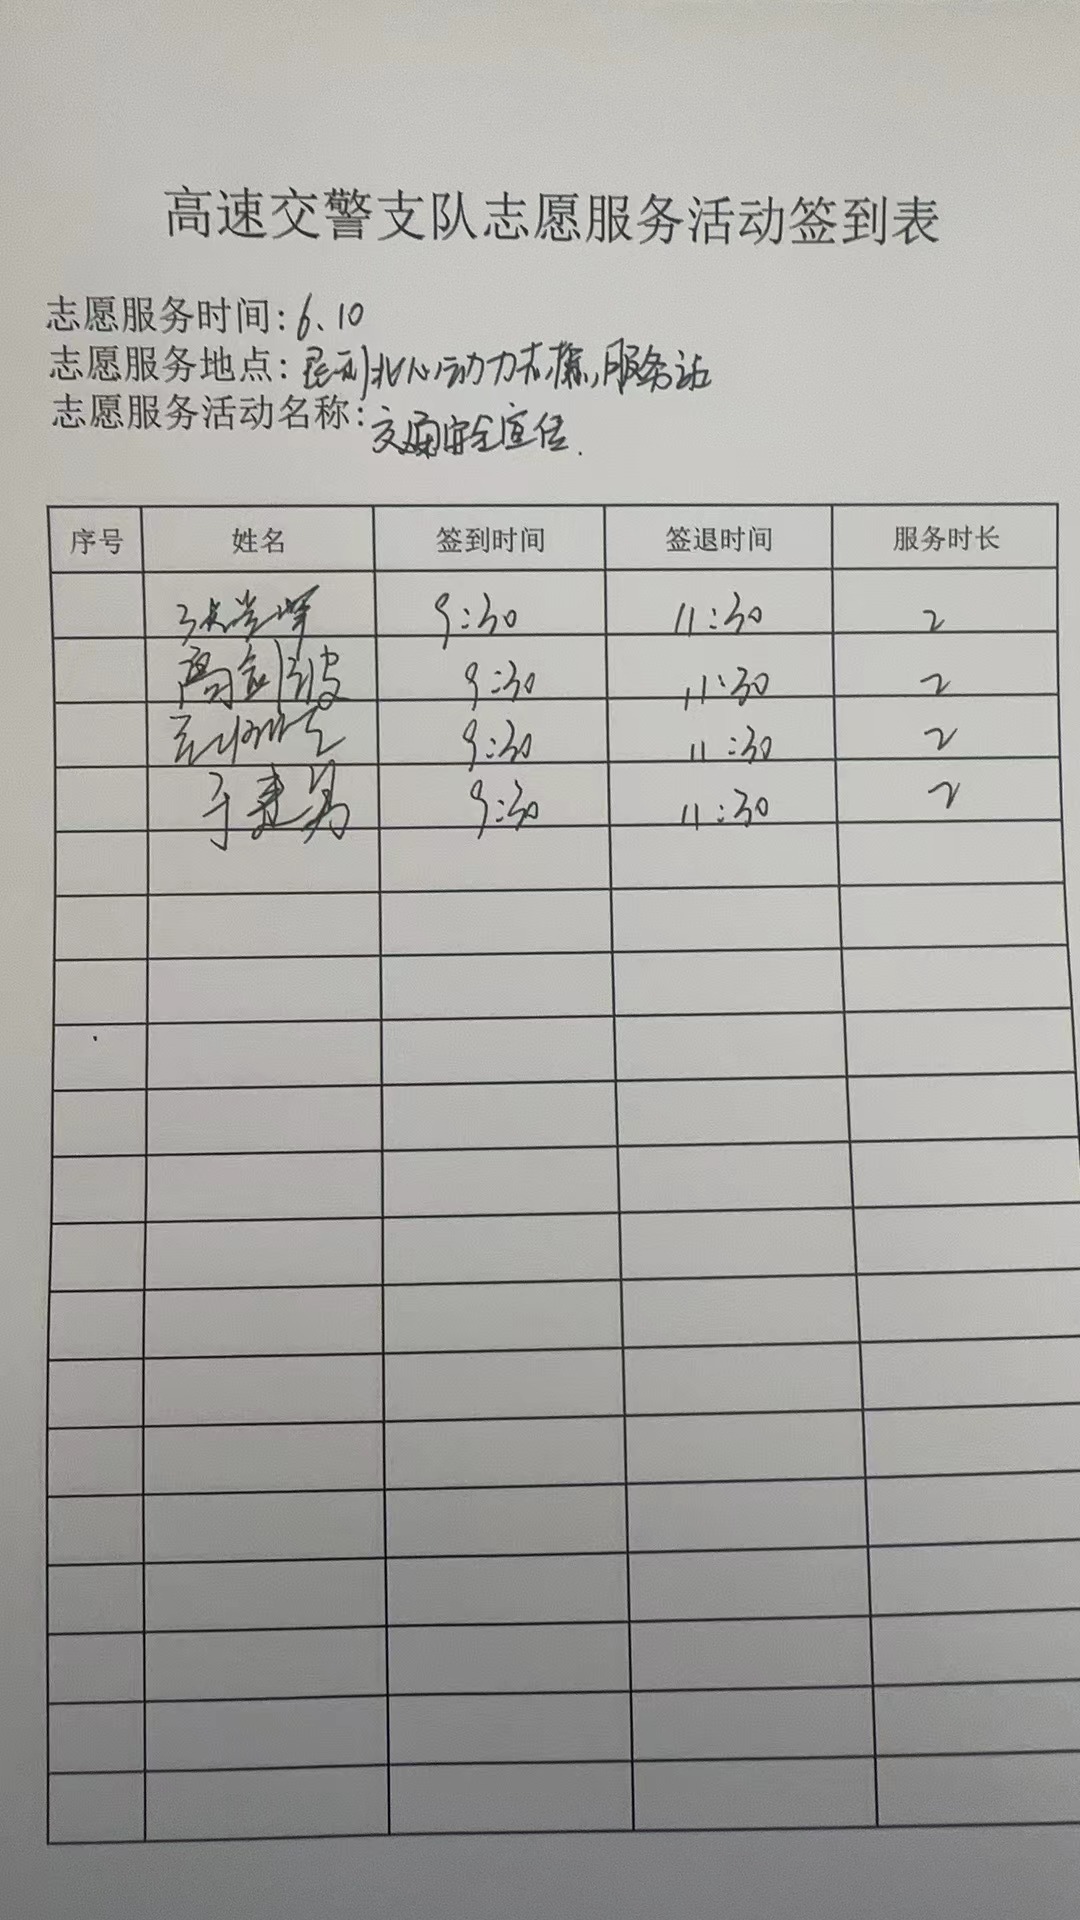 高速交警支队志愿服务活动签到表
志愿服务时间:6.10
志愿服务地点:北 动力 服务站
志愿服务活动名称:交通安全宣传.
序号 姓名 签到时间 签退时间 服务时长
9:30 11:30 2
高剑波 9:30 11:30 2
9:30 11:30 2
于建 9:30 11:30 2